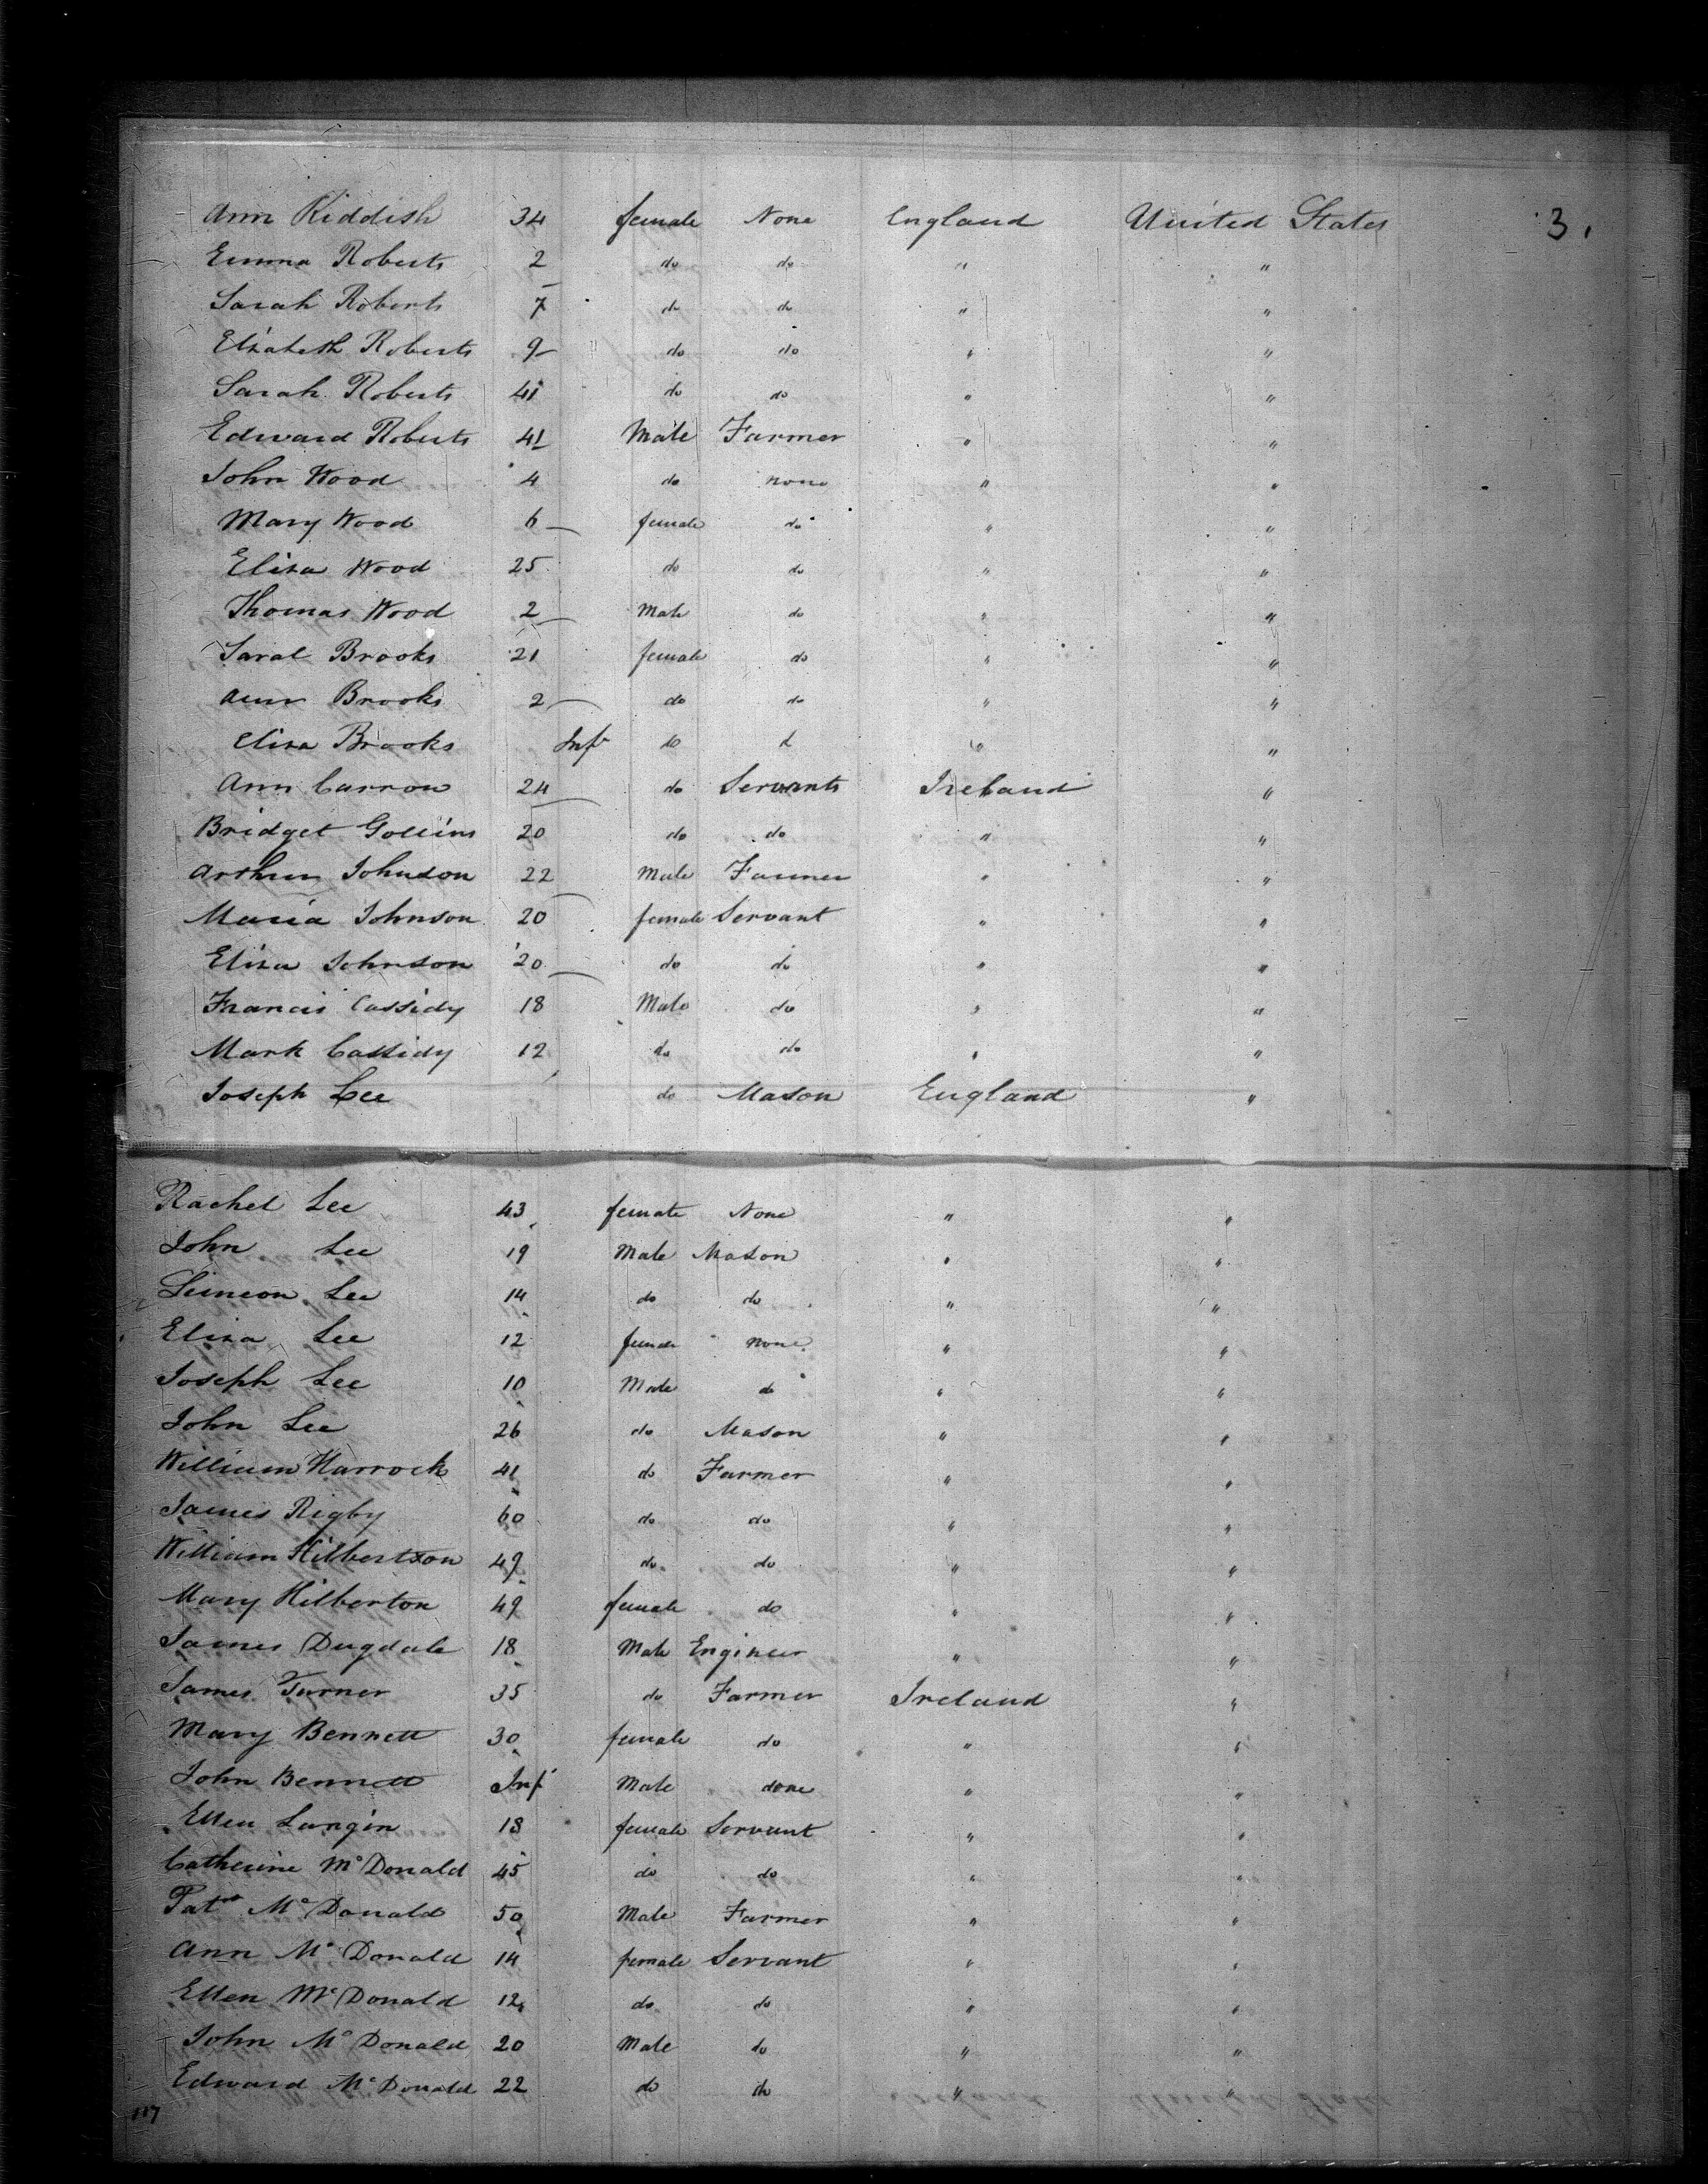 Ann Kiddish 34 female None England United States 3.
Emma Roberts 2 do do " "
Sarah Roberts 7 do do " "
Elizabeth Roberts 9 do do " "
Sarah Roberts 41 do do " "
Edward Roberts 41 Male Farmer " "
John Wood 4 do none " "
Mary Wood 6 female do " "
Eliza Wood 25 do do " "
Thomas Wood 2 Male do " "
Sarah Brooks 21 female do " "
Ann Brooks 2 do do " "
Eliza Brooks Inft do d " "
Ann Carrow 24 do Servants Ireland "
Bridget Gollins 20 do do " "
Arthur Johnson 22 Male Farmer " "
Maria Johnson 20 female Servant " "
Eliza Johnson 20 do do " "
Francis Cassidy 18 Male do " "
Mark Cassidy 12 do do " "
Joseph Lee do Mason England "
Rachel Lee 43 female None " "
John Lee 19 Male Mason " "
Simeon Lee 14 do do " "
Eliza Lee 12 female none " "
Joseph Lee 10 Male do " "
John Lee 26 do Mason " "
William Harrock 41 do Farmer " "
James Rigby 60 do do " "
William Hilbertson 49 do do " "
Mary Hilberton 49 female do " "
James Dugdale 18 Male Engineer " "
James Turner 35 do Farmer Ireland "
Mary Bennett 30 female do " "
John Bennett Inft Male " "
Ellen Langin 18 female Servant " "
Catherine McDonald 45 do do " "
Patk McDonald 50 Male Farmer " "
Ann McDonald 14 female Servant " "
Ellen McDonald 12 do do " "
John McDonald 20 Male do " "
Edward McDonald 22 do do " "
117